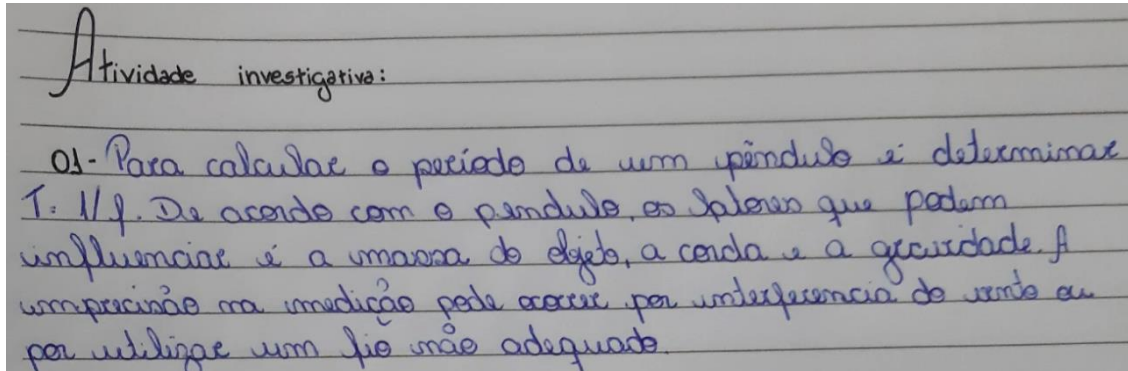 Atividade investigativa:
01- Para calcular o período de um pêndulo é determinar
T= 1/f. De acordo com o pendulo, os fatores que podem
influenciar é a massa do objeto, a corda e a gravidade. A
imprecisão na medição pode ocorrer por interferencia do vento ou
por utilizar um fio não adequado.